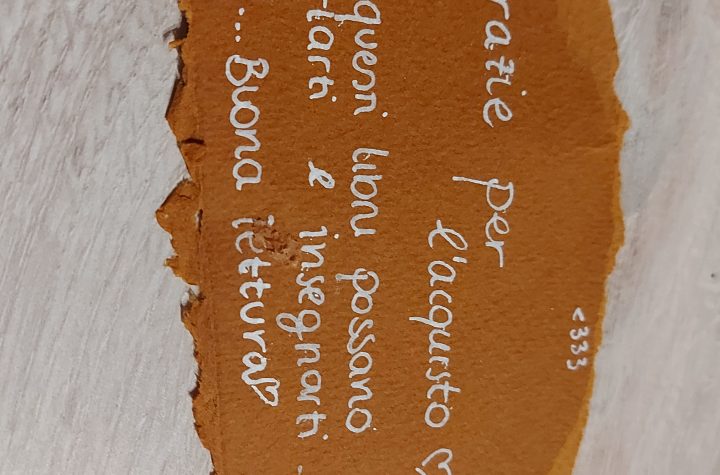 <333
razie per
l'acquisto ♡
questi libri possano
larti e insegnarti
...Buona lettura♡